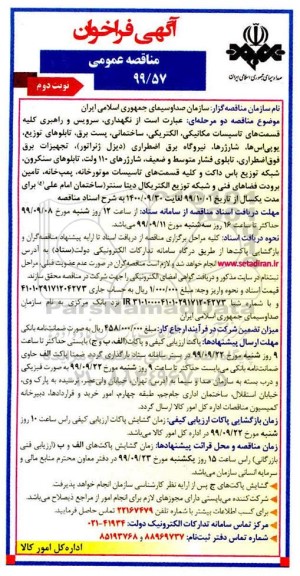 آگهی فراخوان
مناقصه عمومی
۹۹/۵۷
نوبت دوم
صدا و سیمای جمهوری اسلامی ایران
نام سازمان مناقصه گزار: سازمان صداوسیمای جمهوری اسلامی ایران
موضوع مناقصه دو مرحله‌ای: عبارت است از نگهداری، سرویس و راهبری کلیه
قسمت‌های تاسیسات مکانیکی، الکتریکی، ساختمانی، پست برق، تابلوهای توزیع،
یوپی‌اس‌ها، شارژرها، نیروگاه برق اضطراری (دیزل ژنراتور)، تجهیزات برق
فوق‌اضطراری، تابلوی فشار متوسط و ضعیف، شارژرهای ۱۱۰ ولت، تابلوهای سنکرون،
شبکه توزیع باس داکت و کلیه قسمت‌های تاسیسات موتورخانه، پمپ‌خانه، تامین
برودت فضاهای فنی و شبکه توزیع الکتریکال دیتا سنتر(ساختمان امام علی(ع)) برای
مدت یکسال از تاریخ ۹۹/۱۰/۰۱ لغایت ۱۴۰۰/۰۹/۳۰ به شرح اسناد مناقصه
مهلت دریافت اسناد مناقصه از سامانه ستاد: از ساعت ۱۲ روز شنبه مورخ ۹۹/۰۹/۰۸
حداکثر تا ساعت ۱۹ روز سه‌شنبه مورخ ۹۹/۰۹/۱۱ می‌باشد.
نحوه دریافت اسناد: کلیه مراحل برگزاری مناقصه از دریافت اسناد تا ارایه پیشنهاد مناقصه‌گران و
بازگشایی پاکت‌ها از طریق درگاه سامانه تدارکات الکترونیکی دولت(ستاد) به آدرس
www.setadiran.ir انجام خواهد شد و لازم است مناقصه‌گران در صورت عدم عضویت قبلی، مراحل
ثبت‌نام در سایت مذکور و دریافت گواهی امضای الکترونیکی را جهت شرکت در مناقصه محقق سازند.
قیمت اسناد و نحوه واریز وجه: مبلغ ۱/۰۰۰/۰۰۰ ریال به حساب جاری
صداوسیمای جمهوری اسلامی ایران
میزان تضمین شرکت در فرآیند ارجاع کار: مبلغ ۴۵۸/۰۰۰/۰۰۰ ریال به صورت ضمانت‌نامه بانکی
مهلت ارسال پیشنهادها: پاکت ارزیابی کیفی و پاکات (الف، ب و ج) بایستی حداکثر تا ساعت
۹ روز شنبه مورخ ۹۹/۰۹/۲۲ در بستر سامانه ستاد بارگذاری گردد. ضمنا پاکت الف حاوی
ضمانت‌نامه بانکی می‌بایست حداکثر تا ساعت ۹ روز شنبه مورخ ۹۹/۰۹/۲۲ به صورت فیزیکی
خیابان استقلال، ساختمان اداری جام‌جم، طبقه چهارم، امور خرید و قراردادها، دبیرخانه
کمیسیون مناقصات اداره کل امور کالا ارسال گردد.
زمان بازگشایی پاکات ارزیابی کیفی: زمان گشایش پاکات ارزیابی کیفی راس ساعت ۱۰ روز
شنبه مورخ ۹۹/۰۹/۲۲ در اداره کل امور کالا می‌باشد.
زمان مناقصه و محل قرائت پیشنهادها: زمان گشایش پاکت‌های الف و ب (ارزیابی فنی
بازرگانی) راس ساعت ۱۵ روز یکشنبه مورخ ۹۹/۰۹/۲۳ در دفتر معاون محترم منابع مالی و
سرمایه انسانی سازمان می‌باشد.
گشایش پاکت‌های ج پس از ارایه نظر کارشناسی سازمان انجام خواهد پذیرفت.
شرکت‌کننده می‌بایستی دارای مجوزهای لازم برای انجام امور از مراجع ذیصلاح می‌باشد.
برای کسب اطلاعات بیشتر با شماره تلفن ۲۲۱۶۷۴۷۹ تماس حاصل فرمایید.
مرکز تماس سامانه تدارکات الکترونیک دولت: ۴۱۹۳۴-۰۲۱
شماره تماس دفتر ثبت‌نام: ۸۸۹۶۹۷۳۷ و ۸۵۱۹۳۷۶۸
اداره کل امور کالا